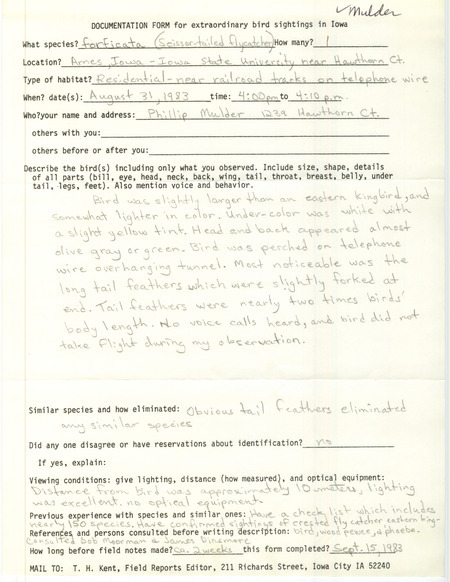 ✓Mulder
DOCUMENTATION FORM for extraordinary bird sightings in Iowa
What species? forficata (Scissor-tailed flycatcher) How many? 1
Location? Ames, Iowa - Iowa State University near Hawthorn Ct.
Type of habitat? Residential - near railroad tracks on telephone wire
When? date(s): August 31, 1983 time: 4:00 pm to 4:10 p.m.
Who? your name and address: Phillip Mulder 1239 Hawthorn Ct.
others with you:
others before or after you:
Describe the bird(s) including only what you observed. Include size, shape, details
of all parts (bill, eye, head, neck, back, wing, tail, throat, breast, belly, under
tail, legs, feet). Also mention voice and behavior.
Bird was slightly larger than an eastern kingbird, and
somewhat lighter in color. Under-color was white with
a slight yellow tint. Head and back appeared almost
olive gray or green. Bird was perched on telephone
wire overhanging tunnel. Most noticeable was the
long tail feathers which were slightly forked at
end. Tail feathers were nearly two times birds'
body length. No voice calls heard, and bird did not
take flight during my observation.
Similar species and how eliminated: Obvious tail feathers eliminated
any similar species
Did any one disagree or have reservations about identification? no
If yes, explain:
Viewing conditions: give lighting, distance (how measured), and optical equipment:
Distance from bird was approximately 10 meters, lighting
was excellent, no optical equipment
Previous experience with species and similar ones: Have a check list which includes
nearly 150 species. Have confirmed sightings of crested flycatcher eastern king-
References and persons consulted before writing description: bird, wood peewee, & phoebe.
Consulted Bob Moorman & James Dinsmore
How long before field notes made? ca. 2 weeks this form completed? Sept. 15, 1983
MAIL TO: T. H. Kent, Field Reports Editor, 211 Richards Street, Iowa City IA 52240